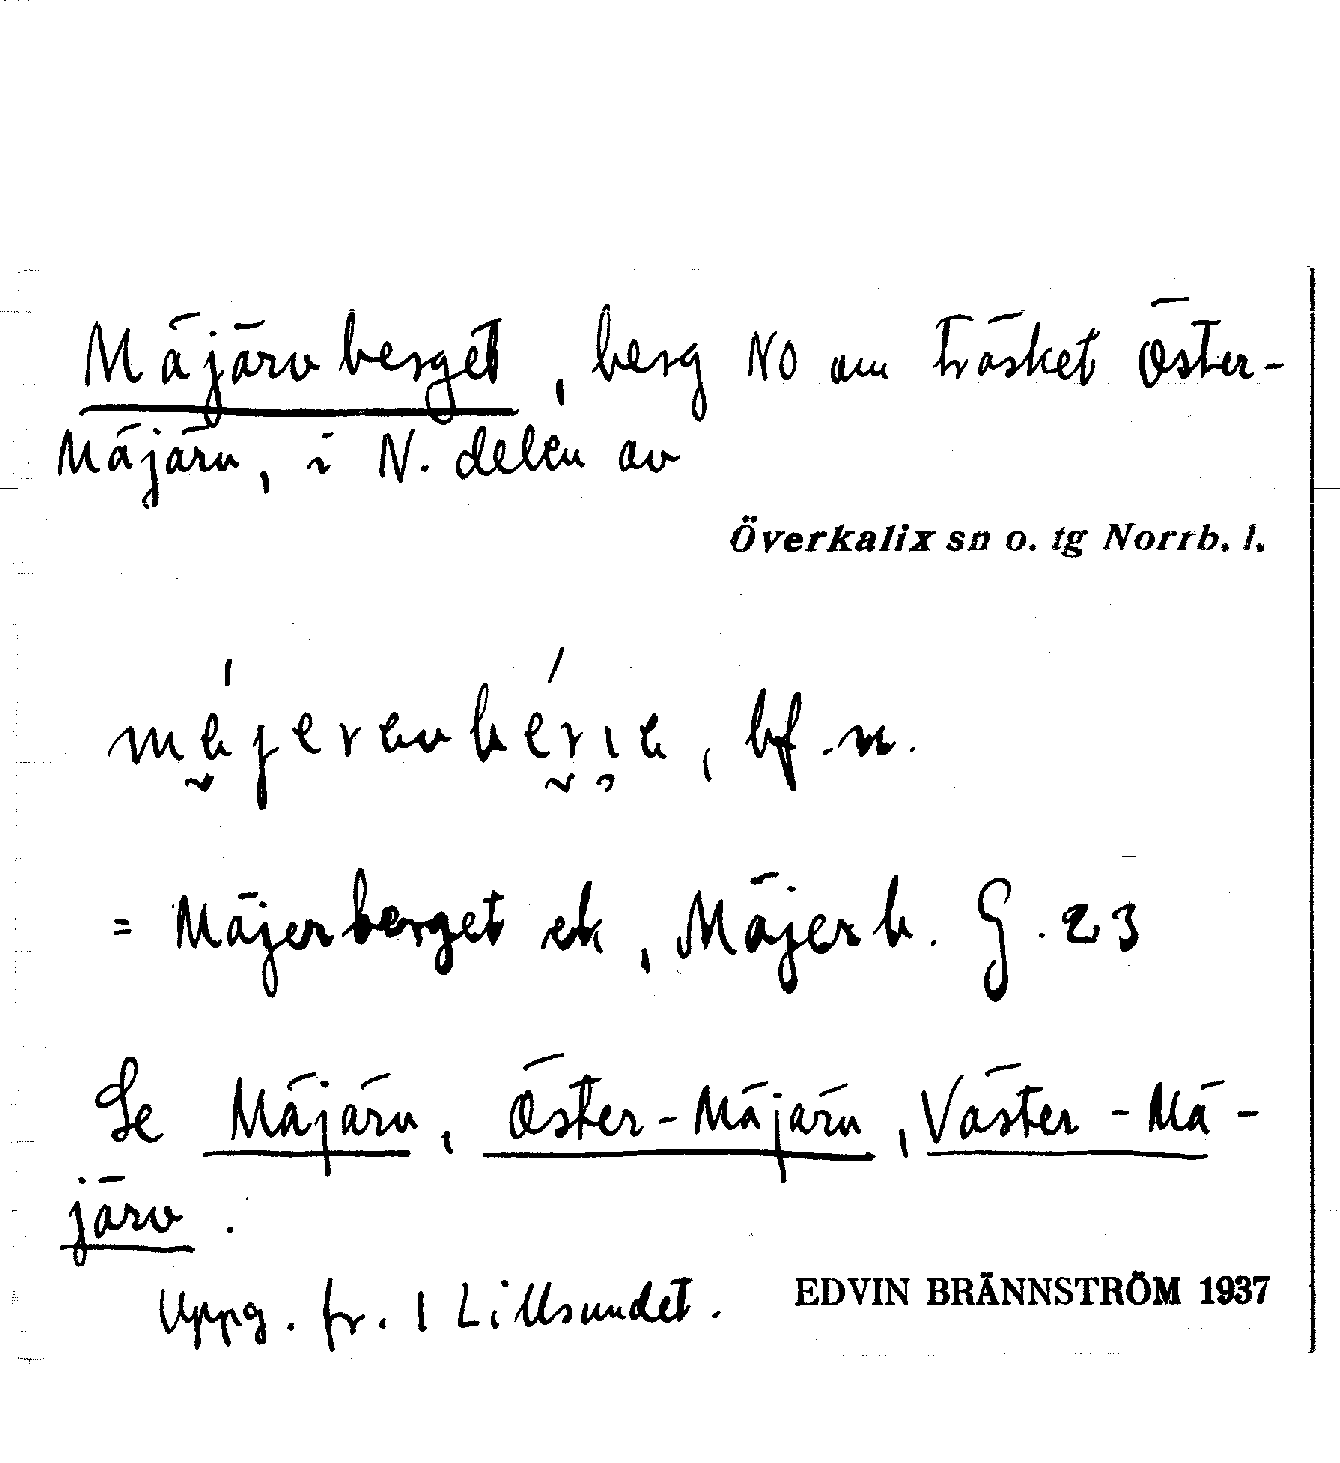 Mäjärvberget, berg NO om träsket Öster-
Mäjärv, i N. delen av
Överkalix sn o. tg Norrb. l.
bf. n.
= Mäjerberget ek, Mäjerb. G. 23
Se Mäjärv, Öster-Mäjärv, Väster-Mä-
järv.
Uppg. fr. 1 Lillsundet.
EDVIN BRÄNNSTRÖM 1937